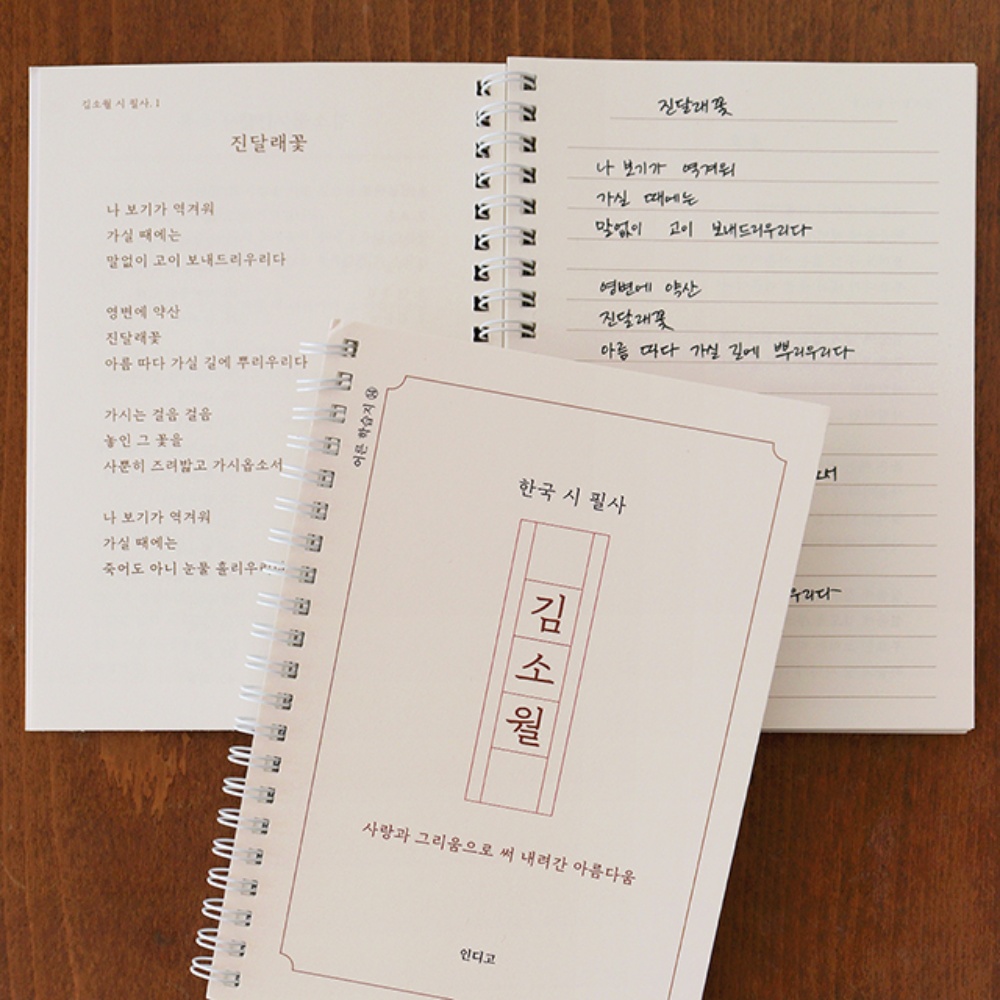 김소월 시 필사. 1
진달래꽃
나 보기가 역겨워
가실 때에는
말없이 고이 보내드리우리다
영변에 약산
진달래꽃
아름 따다 가실 길에 뿌리우리다
가시는 걸음 걸음
놓인 그 꽃을
사뿐히 즈려밟고 가시옵소서
나 보기가 역겨워
가실 때에는
죽어도 아니 눈물 흘리우
진달래꽃
나 보기가 역겨워
가실 때에는
말없이 고이 보내드리우리다
영변에 약산
진달래꽃
아름 따다 가실 길에 뿌리우리다
소서
우리다
어른 학습지
한국 시 필사
김
소
월
사랑과 그리움으로 써 내려간 아름다움
인디고